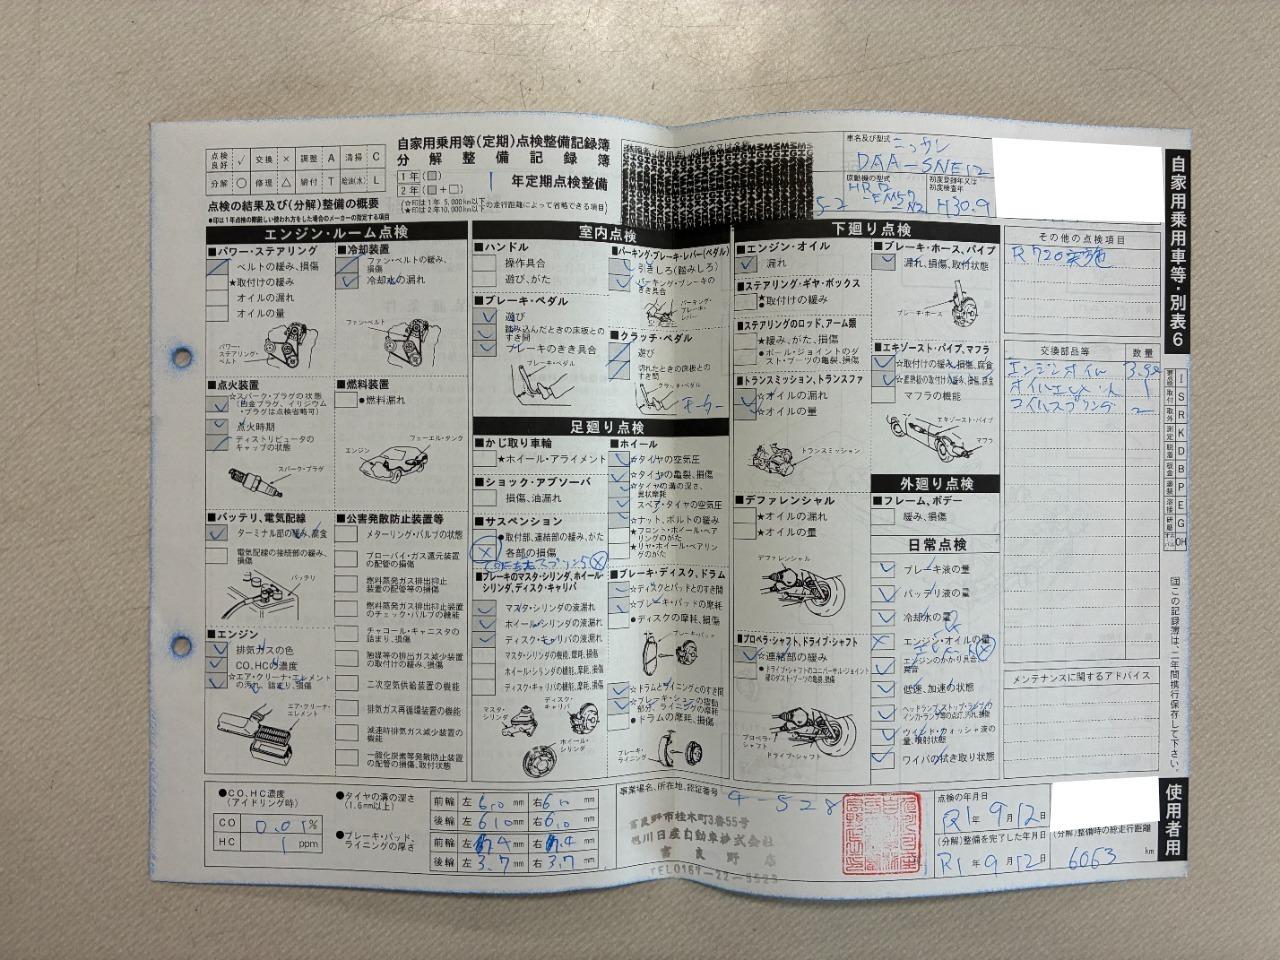 自家用乗用等(定期)点検整備記録簿
分解整備記録簿
点検良好 ✓ 交換 × 調整 A 清掃 C
分解 ○ 修理 △ 締付 T 給油(水) L
1年(□)
2年(□+□)
1 年定期点検整備
点検の結果及び(分解)整備の概要
●印は1年点検の際厳しい使われ方をした場合のメーカーの指定する項目
(☆印は1年5,000km以下 ★印は2年10,000km以下 の走行距離によって省略できる項目)
車名及び型式 ニッサン
DAA-SNE12
原動機の型式 HR12
-EM57
初度登録年又は初度検査年 H30.9
自家用乗用車等・別表6
エンジン・ルーム点検
■パワー・ステアリング
ベルトの緩み、損傷
★取付けの緩み
オイルの漏れ
オイルの量
パワー・ステアリング・ベルト
■冷却装置
ファン・ベルトの緩み、損傷
冷却水の漏れ
ファン・ベルト
■点火装置
☆スパーク・プラグの状態
(白金プラグ、イリジウム・プラグは点検省略可)
点火時期
ディストリビュータのキャップの状態
スパーク・プラグ
■燃料装置
●燃料漏れ
フューエル・タンク
エンジン
■バッテリ、電気配線
ターミナル部の緩み、腐食
電気配線の接続部の緩み、損傷
バッテリ
■公害発散防止装置等
メターリング・バルブの状態
ブローバイ・ガス還元装置の配管の損傷
燃料蒸発ガス排出抑止装置の配管等の損傷
燃料蒸発ガス排出抑止装置のチェック・バルブの機能
チャコール・キャニスタの詰まり、損傷
触媒等の排出ガス減少装置の取付けの緩み、損傷
二次空気供給装置の機能
排気ガス再循環装置の機能
減速時排気ガス減少装置の機能
一酸化炭素等発散防止装置の配管の損傷、取付状態
■エンジン
排気ガスの色
CO、HCの濃度
☆エア・クリーナ・エレメントの汚れ、詰まり、損傷
エア・クリーナ・エレメント
室内点検
■ハンドル
操作具合
遊び、がた
■ブレーキ・ペダル
遊び
踏み込んだときの床板とのすき間
ブレーキのきき具合
ブレーキ・ペダル
■パーキング・ブレーキ・レバー(ペダル)
引きしろ(踏みしろ)
パーキング・ブレーキのきき具合
パーキング・ブレーキ・レバー
■クラッチ・ペダル
遊び
切れたときの床板とのすき間
クラッチ・ペダル
足廻り点検
■かじ取り車輪
★ホイール・アライメント
■ショック・アブソーバ
損傷、油漏れ
■サスペンション
●取付部、連結部の緩み、がた
各部の損傷
■ブレーキのマスタ・シリンダ、ホイール・シリンダ、ディスク・キャリパ
マスタ・シリンダの液漏れ
ホイール・シリンダの液漏れ
ディスク・キャリパの液漏れ
マスタ・シリンダの機能、摩耗、損傷
ホイール・シリンダの機能、摩耗、損傷
ディスク・キャリパの機能、摩耗、損傷
マスタ・シリンダ
ディスク・キャリパ
ホイール・シリンダ
■ホイール
☆タイヤの空気圧
☆タイヤの亀裂、損傷
☆タイヤの溝の深さ、異状摩耗
スペア・タイヤの空気圧
☆ナット、ボルトの緩み
★フロント・ホイール・ベアリングのがた
★リヤ・ホイール・ベアリングのがた
■ブレーキ・ディスク、ドラム
☆ディスクとパッドとのすき間
☆ブレーキ・パッドの摩耗
●ディスクの摩耗、損傷
ブレーキ・パッド
☆ドラムとライニングとのすき間
☆ブレーキ・シューの摺動部分、ライニングの摩耗
●ドラムの摩耗、損傷
ブレーキ・ライニング
下廻り点検
■エンジン・オイル
漏れ
■ステアリング・ギヤ・ボックス
★●取付けの緩み
■ステアリングのロッド、アーム類
★緩み、がた、損傷
●ボール・ジョイントのダスト・ブーツの亀裂、損傷
■トランスミッション、トランスファ
☆オイルの漏れ
☆オイルの量
トランスミッション
■デファレンシャル
★オイルの漏れ
★オイルの量
デファレンシャル
■プロペラ・シャフト、ドライブ・シャフト
☆連結部の緩み
●ドライブ・シャフトのユニバーサル・ジョイント部のダスト・ブーツの亀裂、損傷
プロペラ・シャフト
ドライブ・シャフト
■ブレーキ・ホース、パイプ
漏れ、損傷、取付状態
ブレーキ・ホース
■エキゾースト・パイプ、マフラ
☆取付けの緩み、損傷、腐食
☆遮熱板の取付けの緩み、損傷、腐食
マフラの機能
エキゾースト・パイプ
マフラ
外廻り点検
■フレーム、ボデー
緩み、損傷
日常点検
ブレーキ液の量
バッテリ液の量
冷却水の量
エンジン・オイルの量
エンジンのかかり具合、異音
低速、加速の状態
ウインド・ウォッシャ液の量、噴射状態
ワイパの拭き取り状態
その他の点検項目
交換部品等 数量
エンジンオイル
オイルエレメント 1
コイルスプリング 2
メンテナンスに関するアドバイス
I
S
R
K
D
B
P
E
G
OH
注この記録簿は、二年間携行保存して下さい。
使用者用
●CO、HC濃度(アイドリング時)
CO 0.01%
HC 1 ppm
●タイヤの溝の深さ(1.6mm以上)
前輪 左 6.0 mm 右 6.0 mm
後輪 左 6.0 mm 右 6.0 mm
●ブレーキ・パッド、ライニングの厚さ
前輪 左 mm 右 mm
後輪 左 3.7 mm 右 3.7 mm
事業場名、所在地、認証番号
4-528
富良野市桂木町3番55号
旭川日産自動車株式会社
富良野店
点検の年月日
R1年9月12日
(分解)整備を完了した年月日
R1年9月12日
(分解)整備時の総走行距離
6063 km